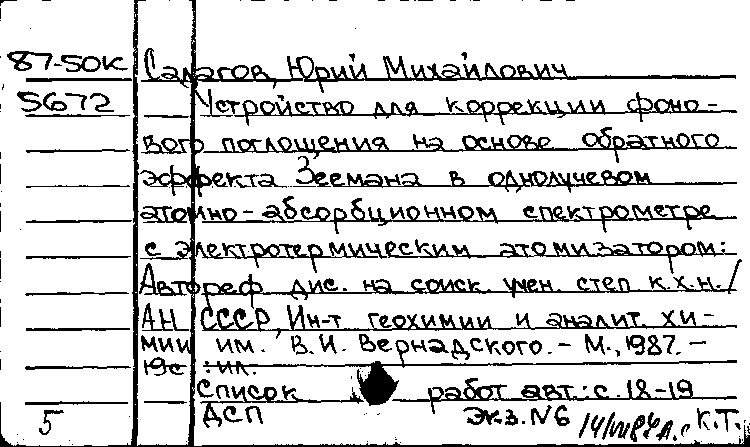 87-50К Салагов, Юрий Михайлович
5672 Устройство для коррекции фоно-
вого поглощения на основе обратного
эффекта Зеемана в однолучевом
атомно-абсорбционном спектрометре
с электротермическим атомизатором:
Автореф. дис. на соиск. учен. степ. к.х.н./
АН СССР, Ин-т геохимии и аналит. хи-
мии им. В.И. Вернадского. - М., 1987. -
19с.: ил.
Список работ авт.: с. 18-19
5 ДСП Экз. N6 К.Т.